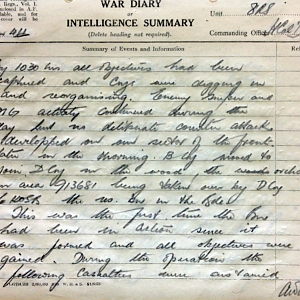 WAR DIARY
OR
INTELLIGENCE SUMMARY
(Delete heading not required).
Unit 8RS
Commanding Officer
Summary of Events and Information
By 1030 hrs all objectives had been
captured and Coys were digging in
and reorganising. Enemy sniper and
MG activity continued during the
day but no deliberate counter attack
developped on our sector of the front.
later in the morning B Coy moved to
join D Coy in the wood the
in area 913681 being taken over by D Coy
the
This was the first time the Bn
had been in action since it
was formed and all objectives were
gained. During the operation the
following casualties were sustained